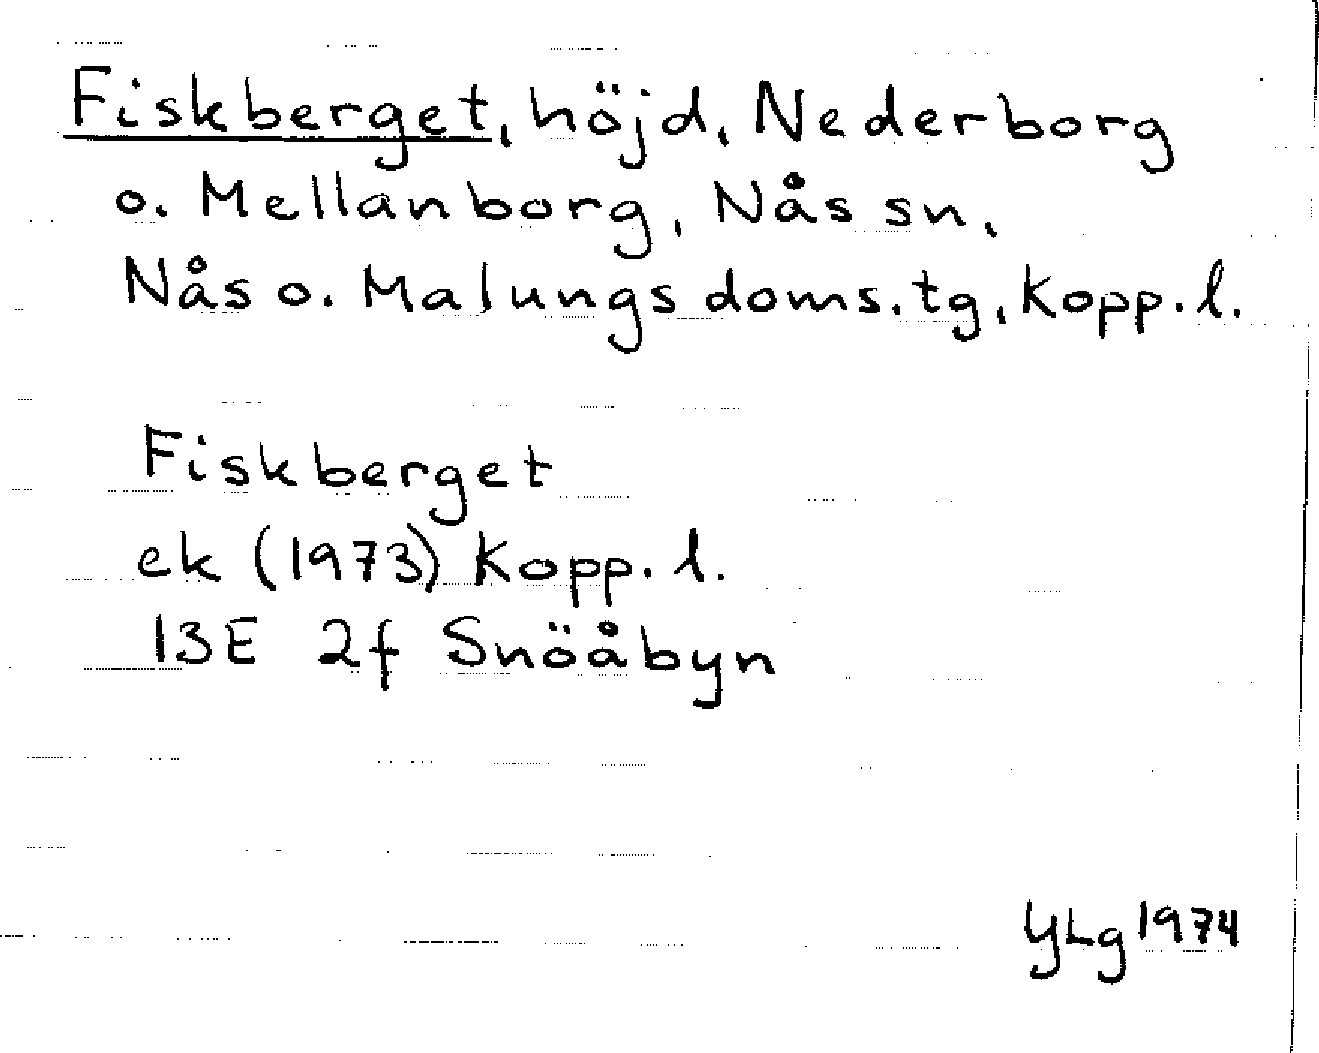 Fiskberget, höjd, Nederborg
o. Mellanborg, Nås sn,
Nås o. Malungs doms.tg, Kopp.l.
Fiskberget
ek (1973) Kopp. l.
13E 2f Snöåbyn
YLg 1974